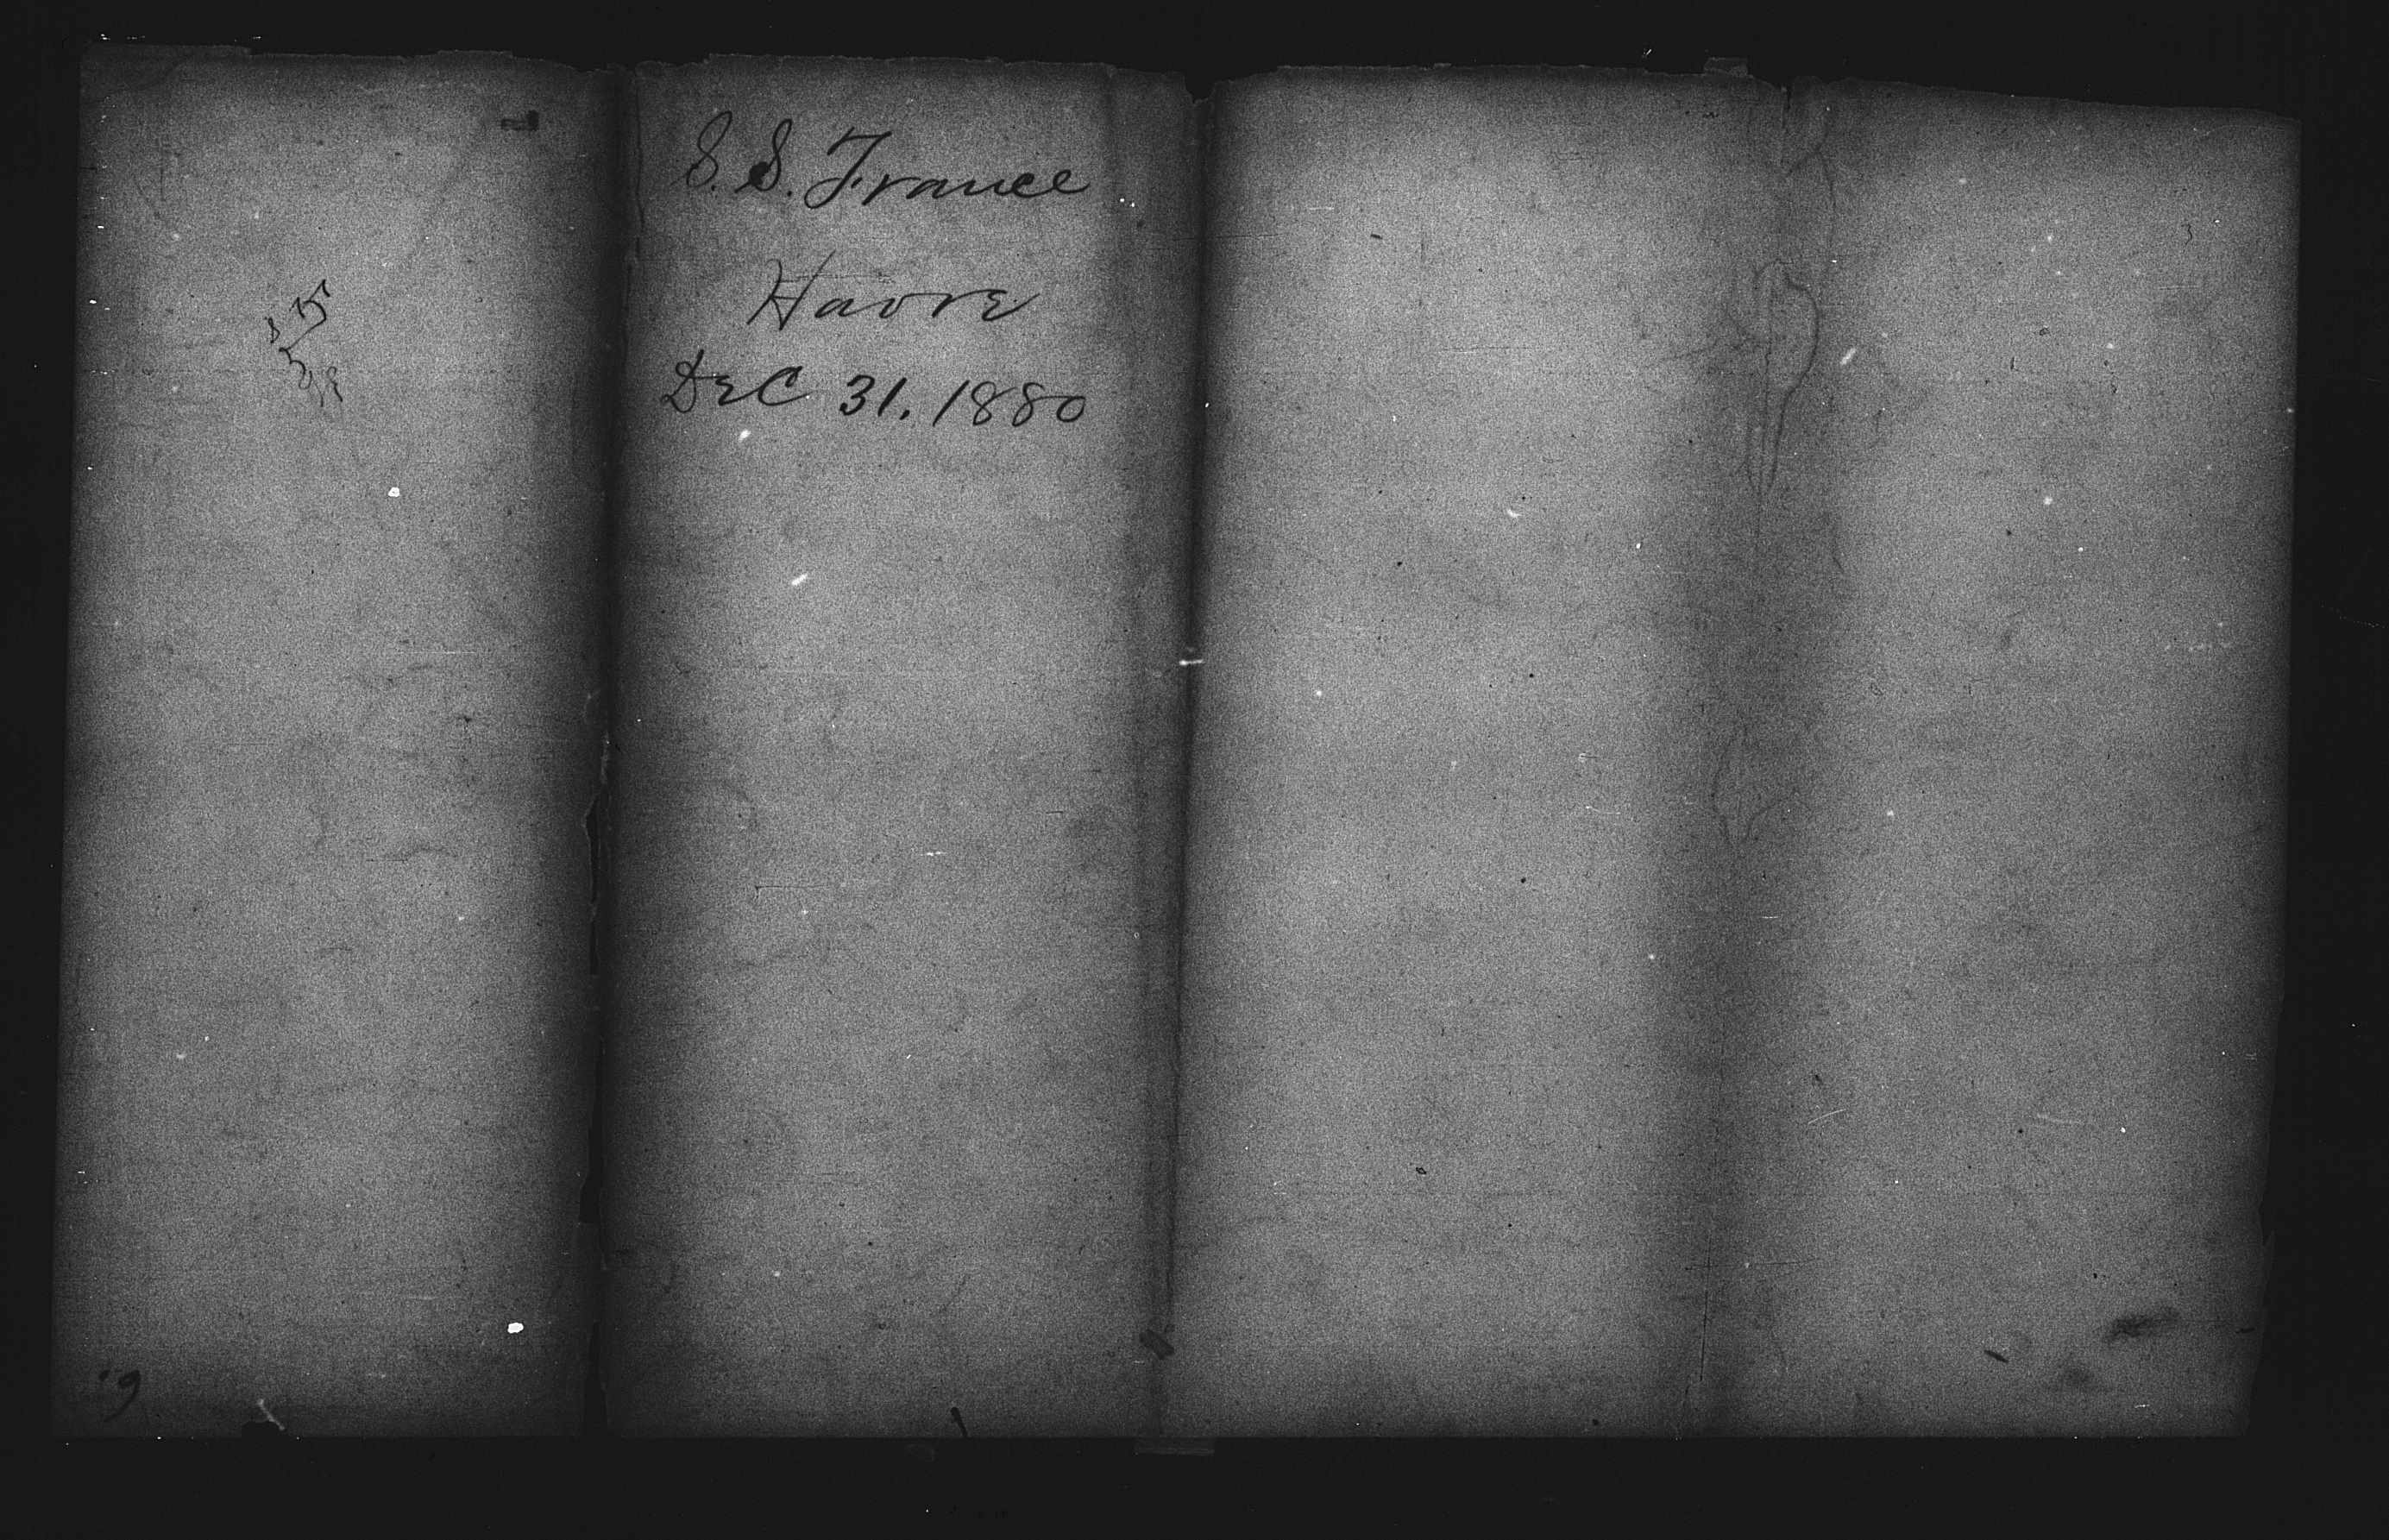 S. S. France
Havre
Dec 31. 1880